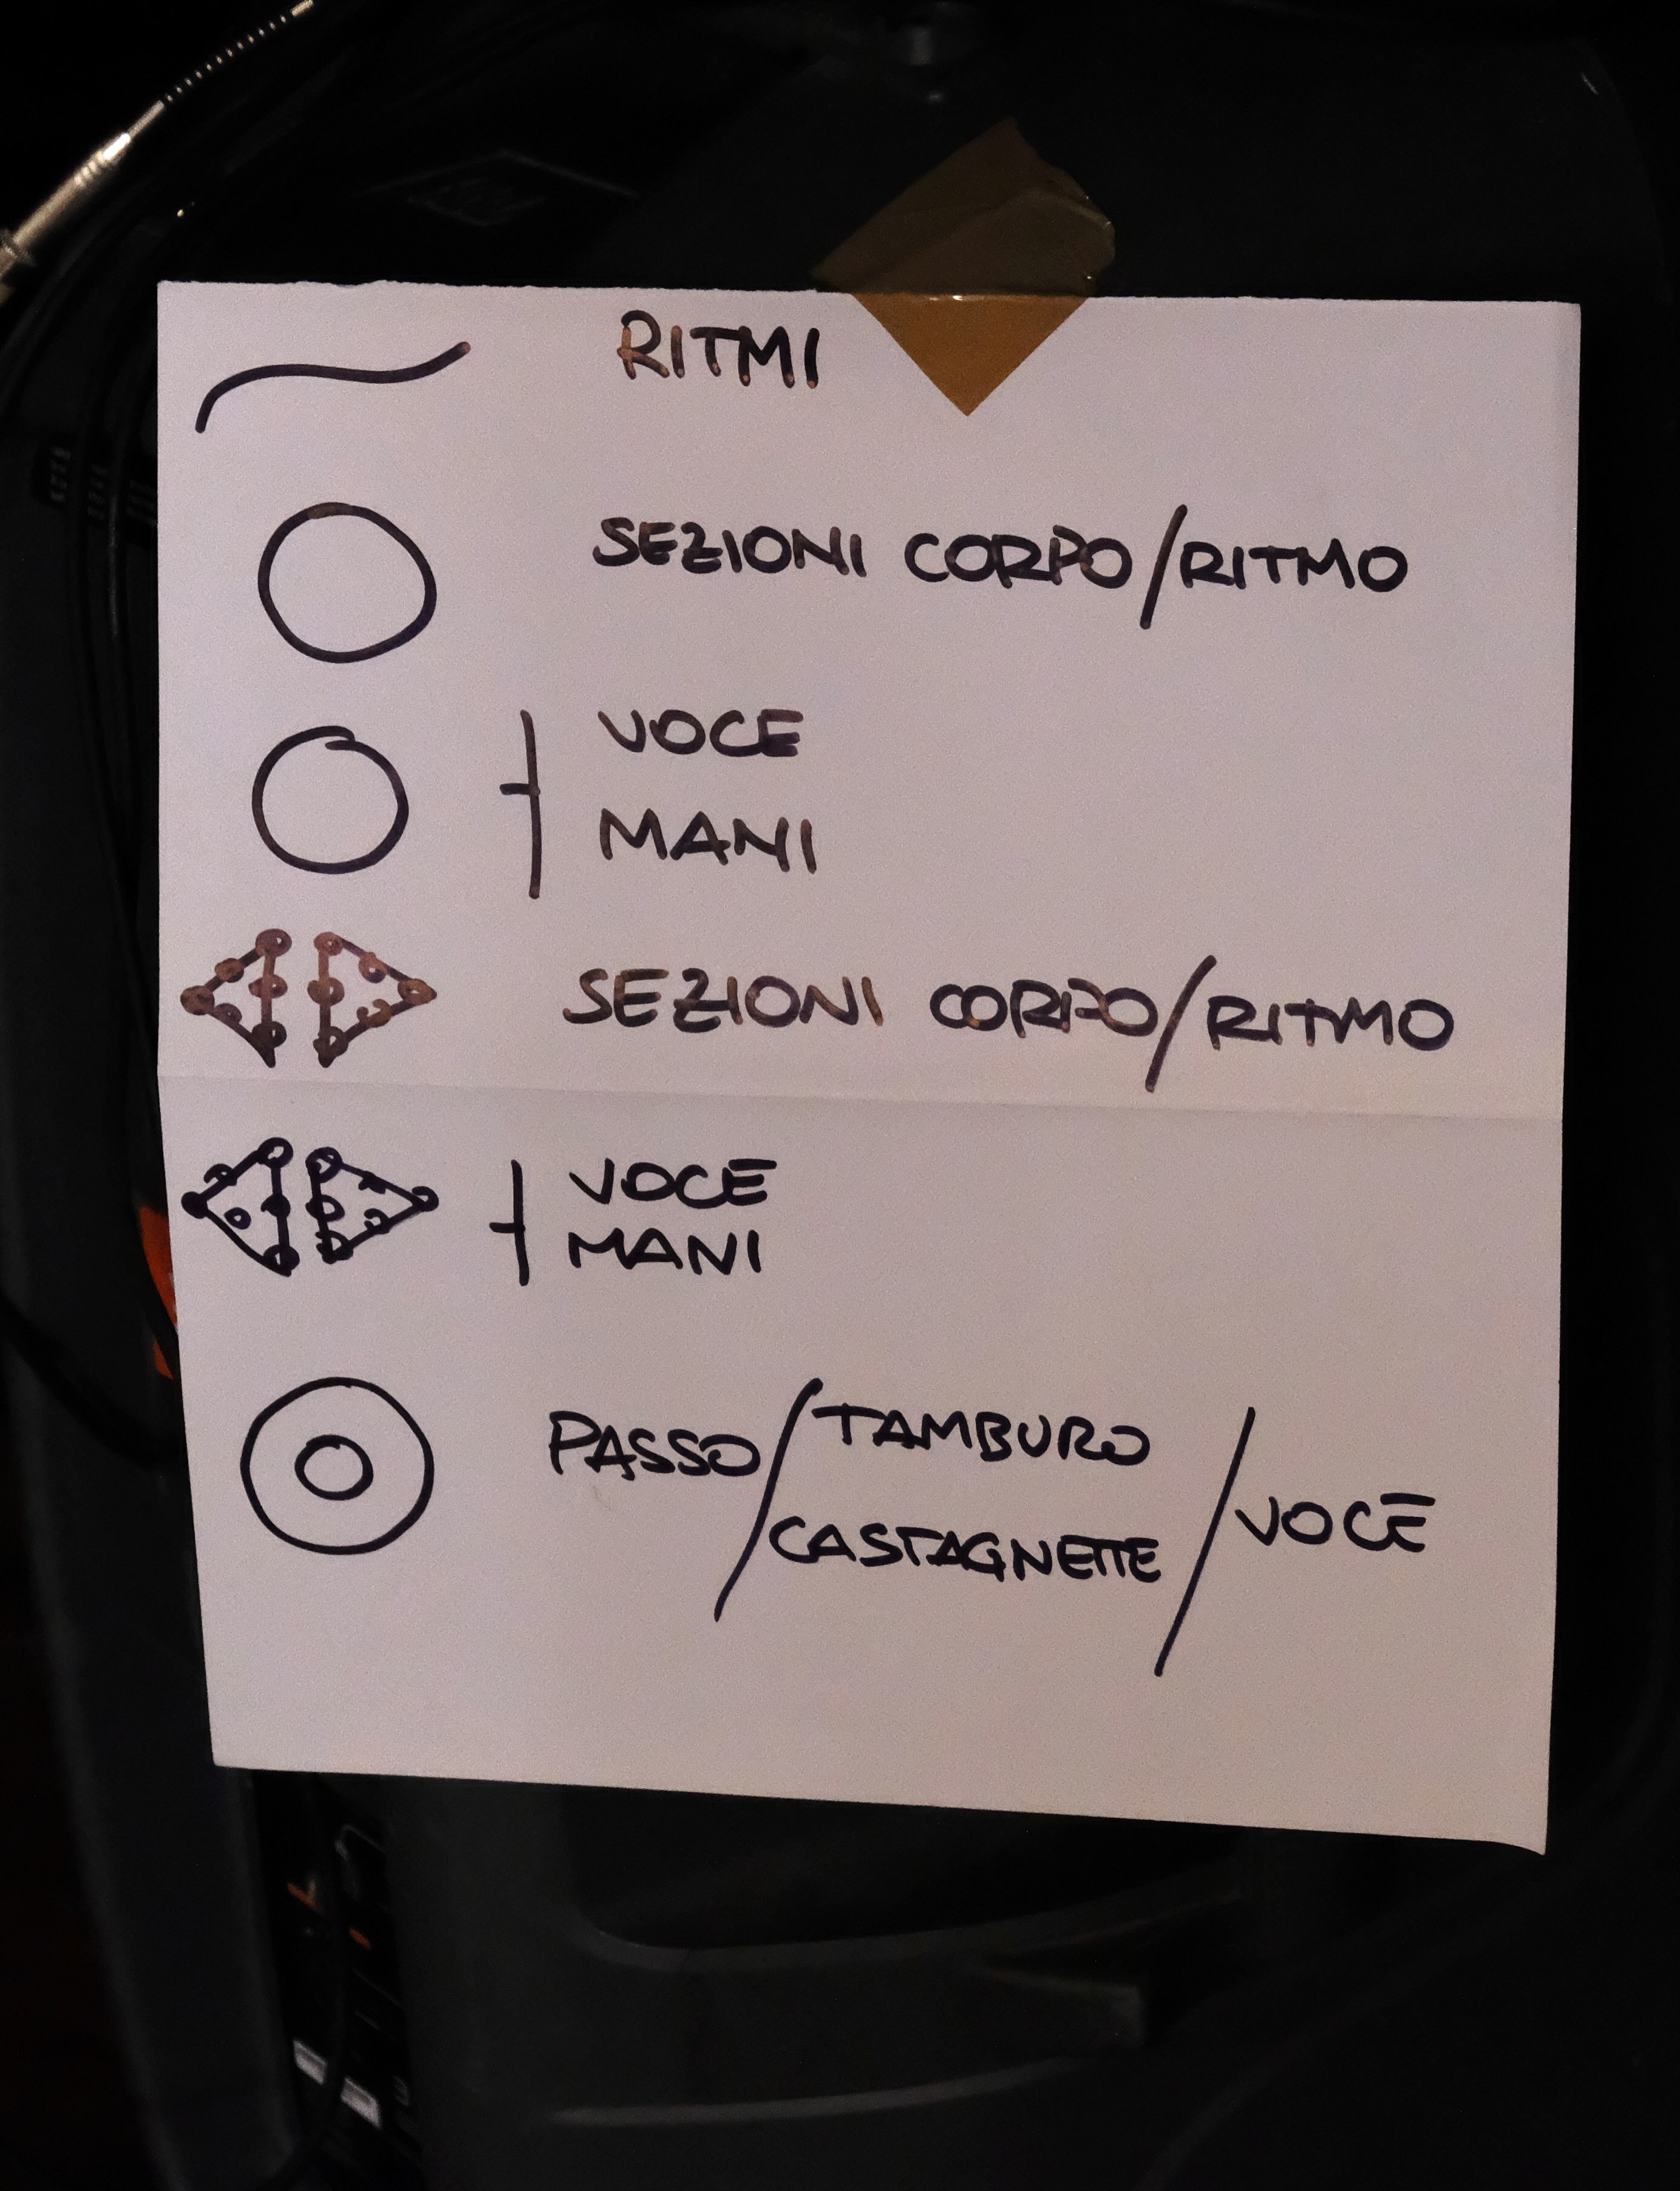 RITMI
SEZIONI CORPO/RITMO
VOCE
MANI
SEZIONI CORPO/RITMO
VOCE
MANI
PASSO/TAMBURO
CASTAGNETTE/VOCE